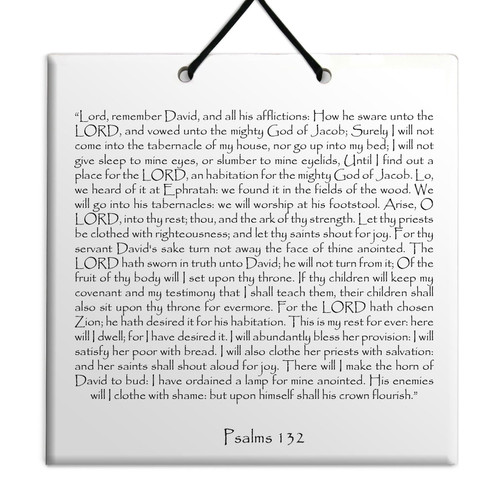 “Lord, remember David, and all his afflictions: How he sware unto the
LORD, and vowed unto the mighty God of Jacob; Surely I will not
come into the tabernacle of my house, nor go up into my bed; I will not
give sleep to mine eyes, or slumber to mine eyelids, Until I find out a
place for the LORD, an habitation for the mighty God of Jacob. Lo,
we heard of it at Ephratah: we found it in the fields of the wood. We
will go into his tabernacles: we will worship at his footstool. Arise, O
LORD, into thy rest; thou, and the ark of thy strength. Let thy priests
be clothed with righteousness; and let thy saints shout for joy. For thy
servant David's sake turn not away the face of thine anointed. The
LORD hath sworn in truth unto David; he will not turn from it; Of the
fruit of thy body will I set upon thy throne. If thy children will keep my
covenant and my testimony that I shall teach them, their children shall
also sit upon thy throne for evermore. For the LORD hath chosen
Zion; he hath desired it for his habitation. This is my rest for ever: here
will I dwell; for I have desired it. I will abundantly bless her provision: I will
satisfy her poor with bread. I will also clothe her priests with salvation:
and her saints shall shout aloud for joy. There will I make the horn of
David to bud: I have ordained a lamp for mine anointed. His enemies
will I clothe with shame: but upon himself shall his crown flourish.”
Psalms 132